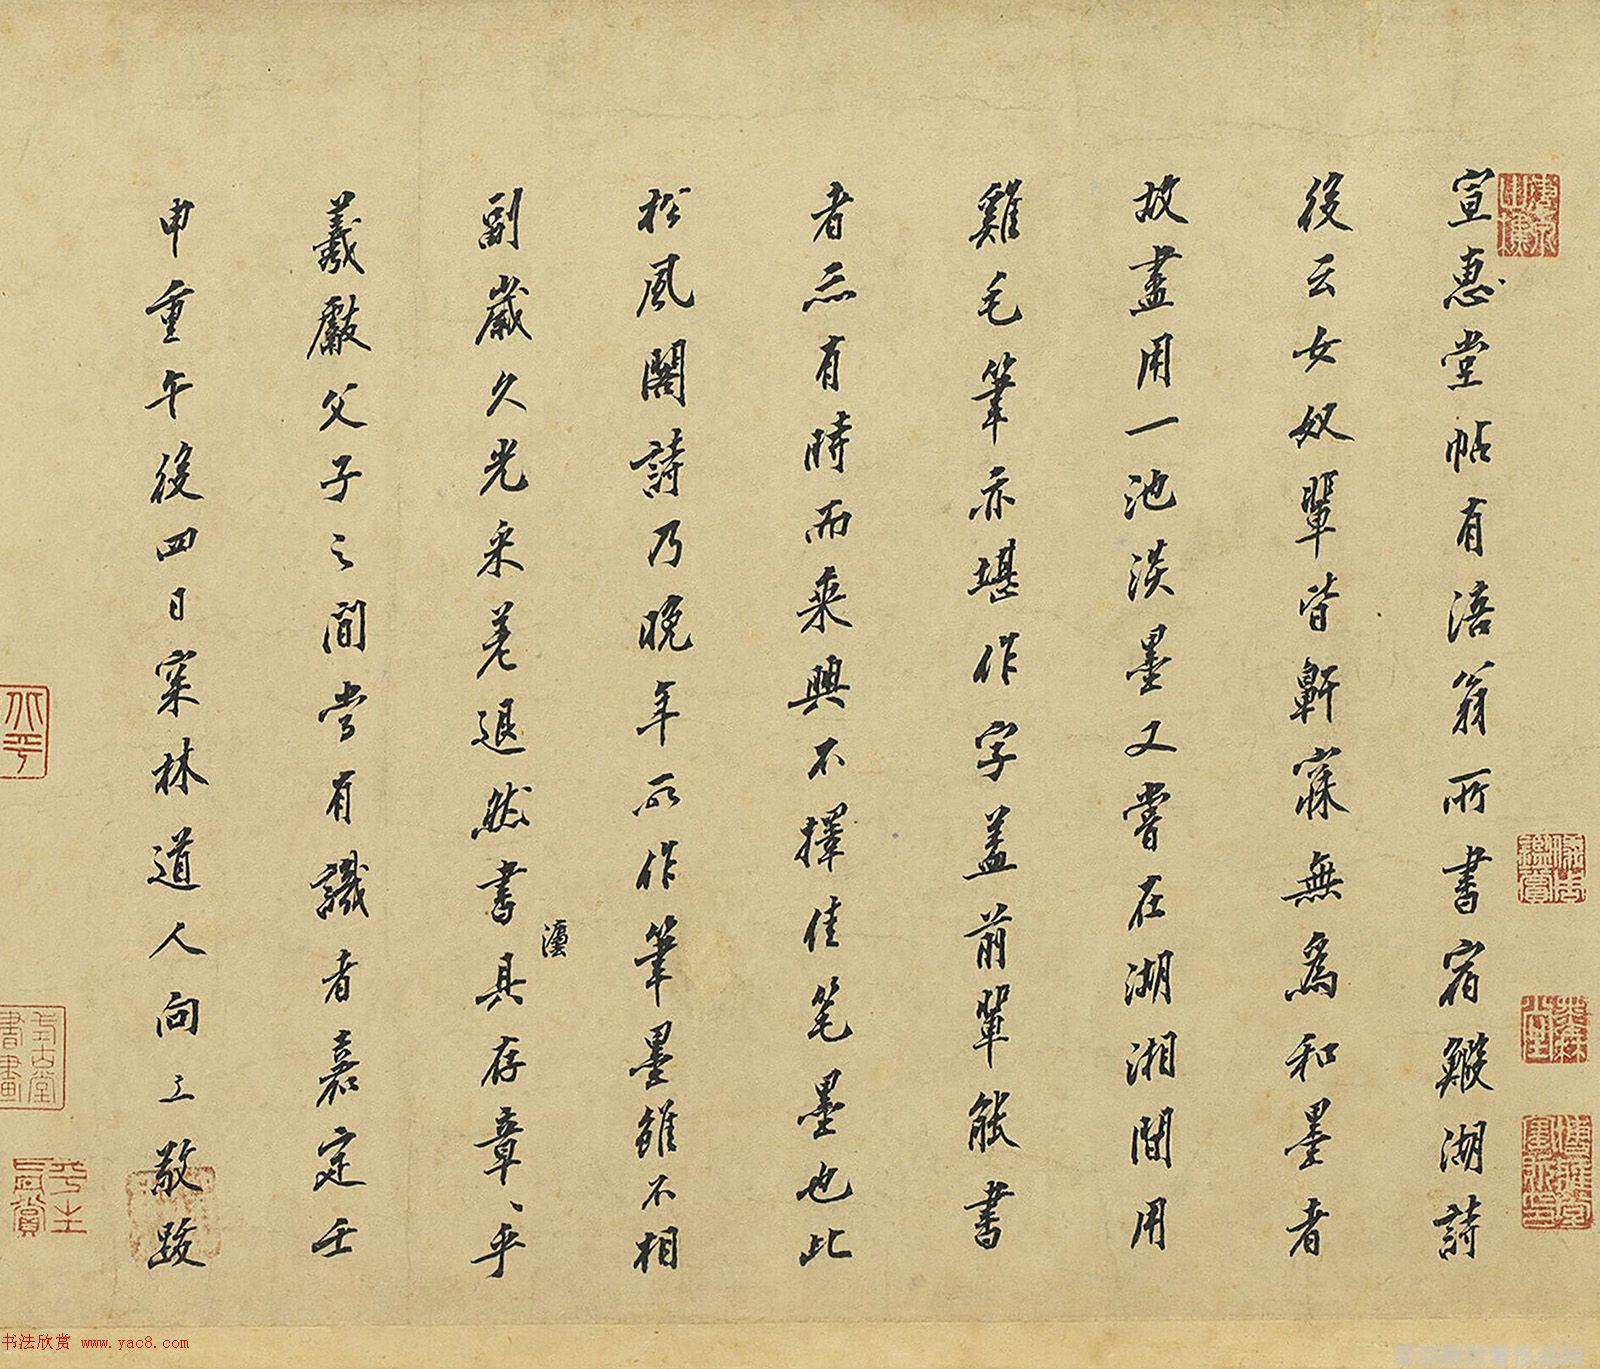 宣惠堂帖有涪翁所書宿鰕湖詩
後云女奴輩皆鼾寐無為和墨者
故盡用一池淡墨又嘗在湖湘間用
雞毛筆亦堪作字蓋前輩能書
者亦有時而乘興不擇佳笔墨也此
松風閣詩乃晚年所作筆墨雖不相
副歲久光采差退然書具存章〻乎
瀍
羲獻父子之間當有識者嘉定壬
申重午後四日寀林道人向工敬跋
书法欣赏 www.yac8.com